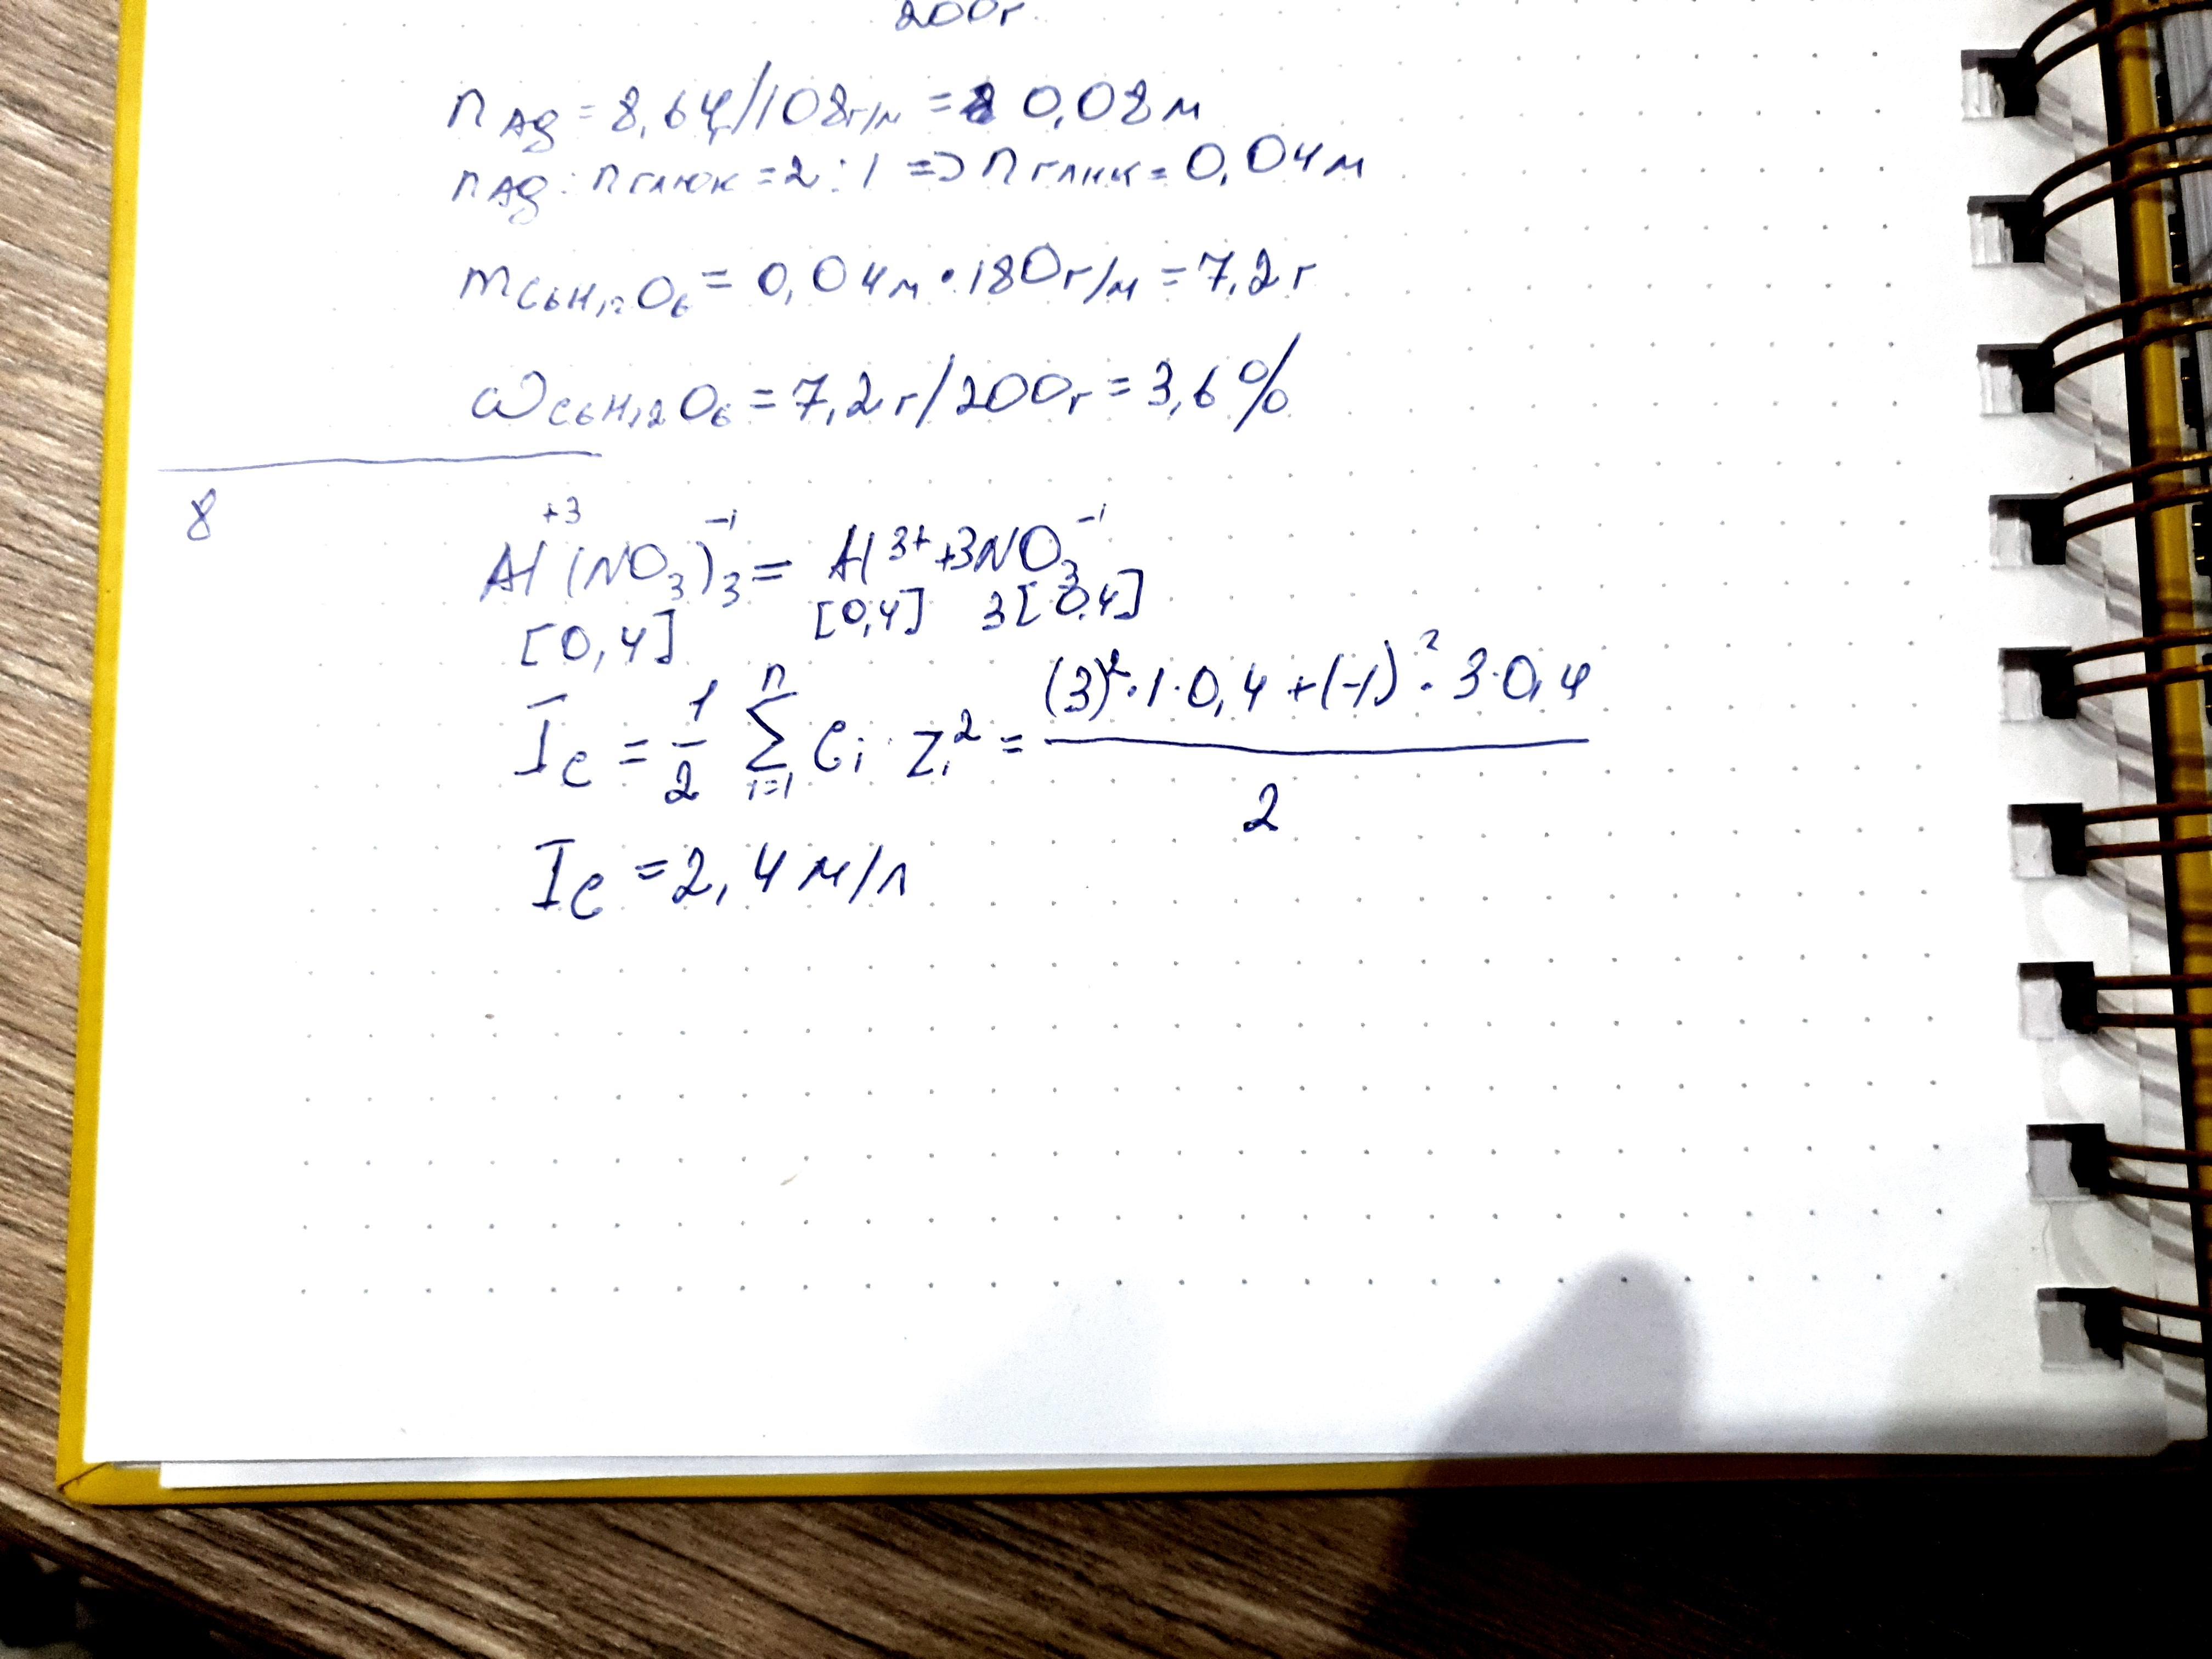 200г
n Ag = 8,64/108г/м = 0,08м
n Ag : n глюк = 2 : 1 => n глюк = 0,04м
m C6H12O6 = 0,04м • 180г/м = 7,2г
ω C6H12O6 = 7,2г/200г = 3,6%
8
+3 -1 -1
Al(NO3)3 = Al³⁺ + 3NO3
[0,4] [0,4] 3[0,4]
Ic = 1/2 Σ(i=1, n) Ci · Zi² = ((3)²·1·0,4 + (-1)²·3·0,4)/2
Ic = 2,4 м/л